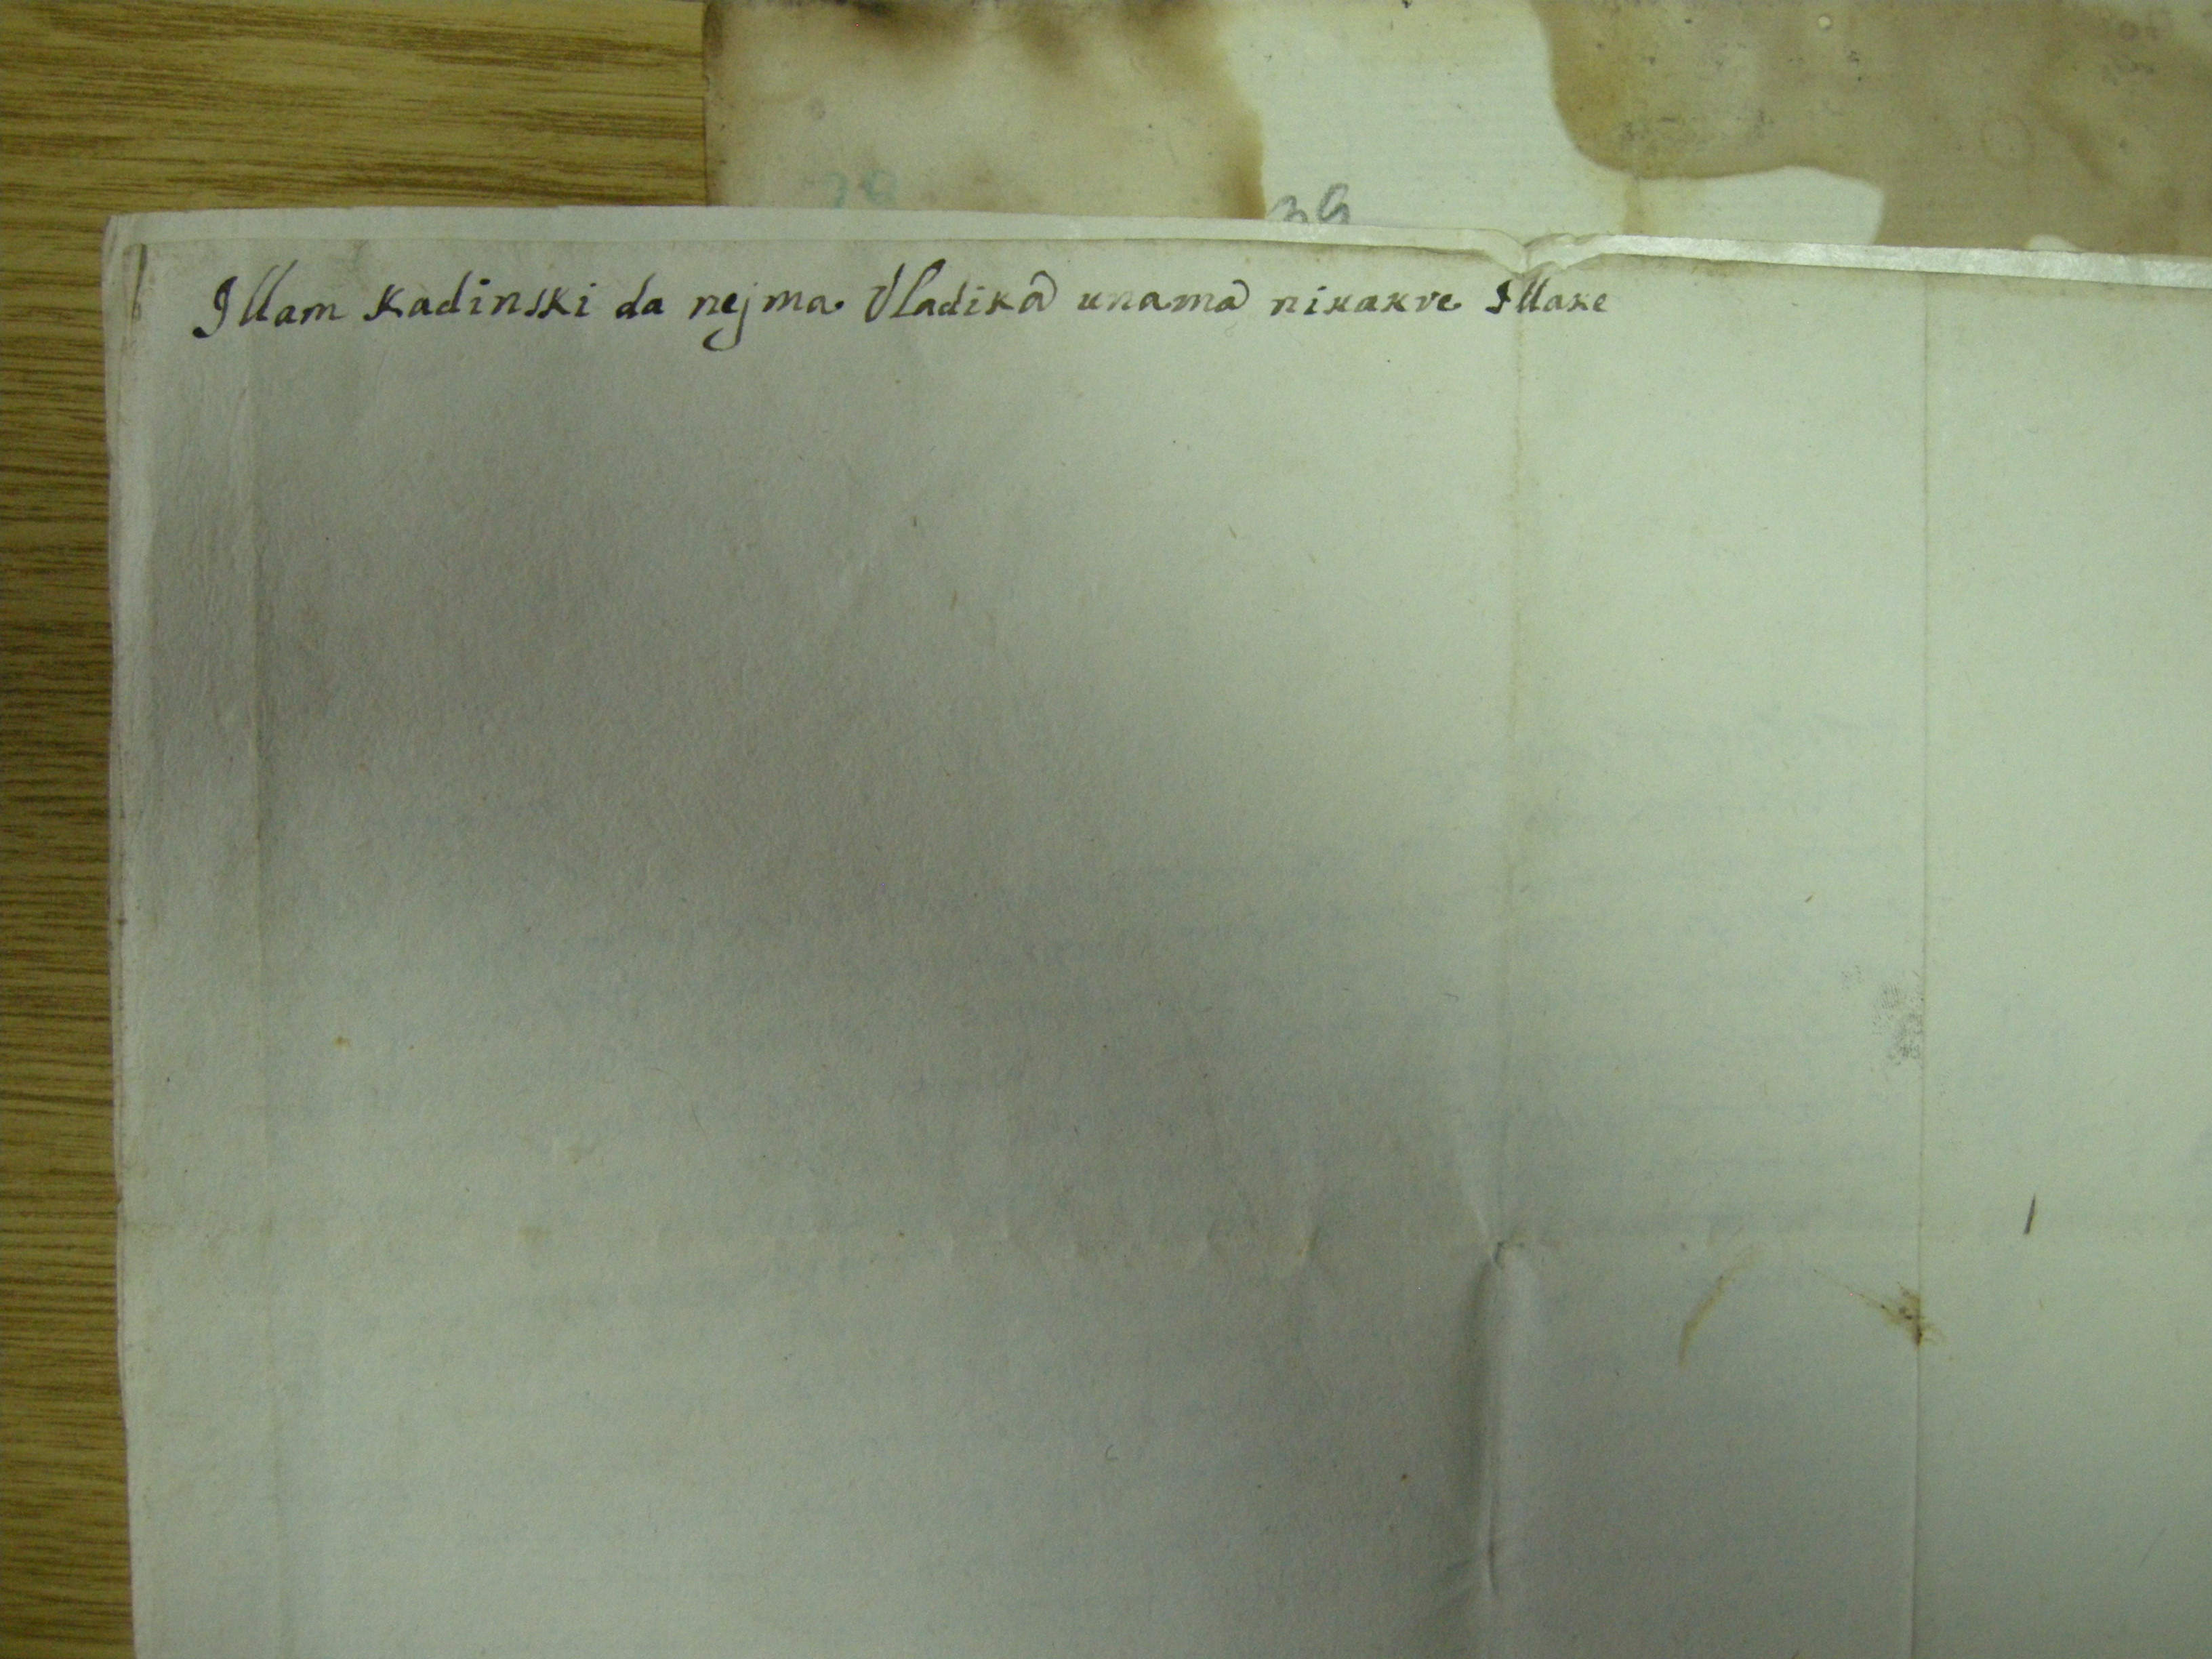 39
Illam Kadinski da nejma Vladika unama nikakve Illake